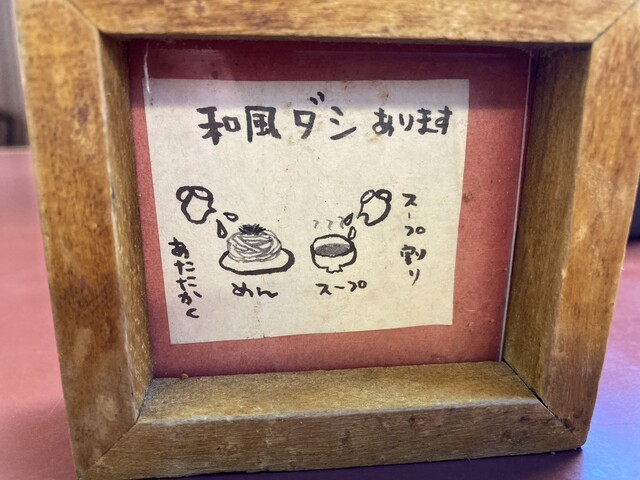 和風ダシあります
スープ割り
あたたかく
めん
スープ